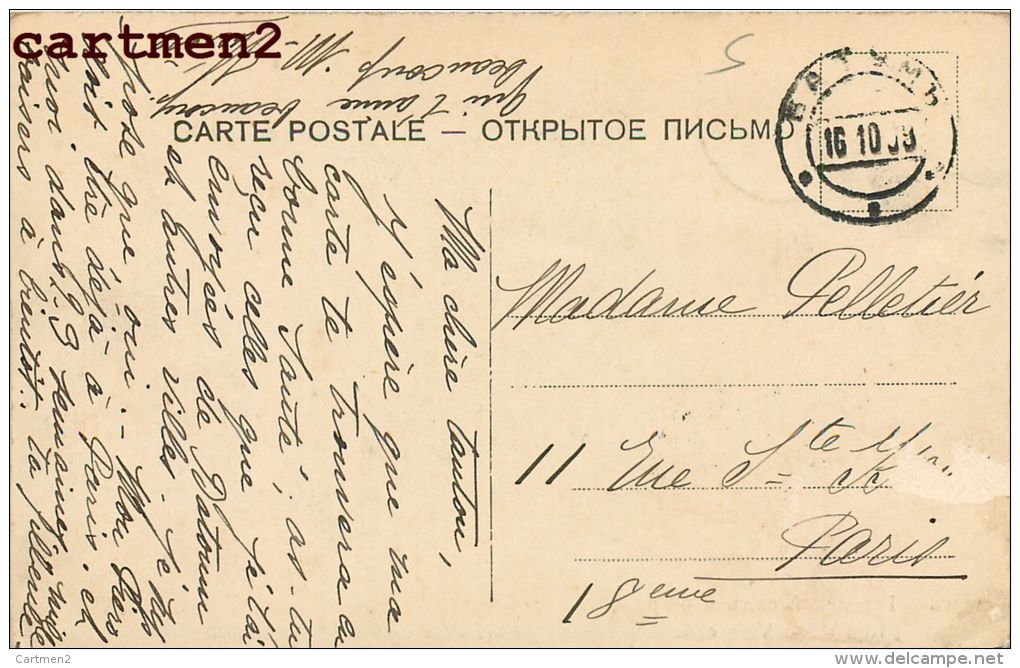 cartmen2
CARTE POSTALE — ОТКРЫТОЕ ПИСЬМО
БАТУМЪ
16 10 09
5
Ma chère tantou,
J'éspère que ma
carte te trouvera en
bonne santé; as-tu
reçu celles que je t'ai
envoyées de Batoum
et autres villes. Je sup
pose que oui. - Mon
doit être déjà à Paris. et
moi dans 2-3 semaines. mill
baisers à bientôt. ta filleule
qui t'aime beaucoup.
beaucoup.
Madame Pelletier
11 Rue Ste
Paris
18eme
Cartmen2
www.delcampe.net